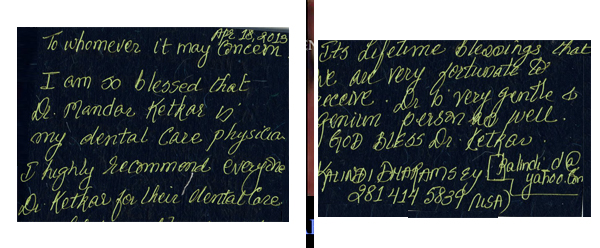 Apr 18, 2013
To whomever it may Concern
I am so blessed that
Dr. Mandar Ketkar is
my dental Care physician
I highly recommend everyone
Dr. Ketkar for their dental Care
Its Lifetime blessings that
we are very fortunate to
receive. Dr is very gentle &
genuin person as well.
GOD BLESS Dr. Ketkar
KALINDI DHARAMSEY [kalindi_d@
yahoo.com
281 414 5839 (USA)